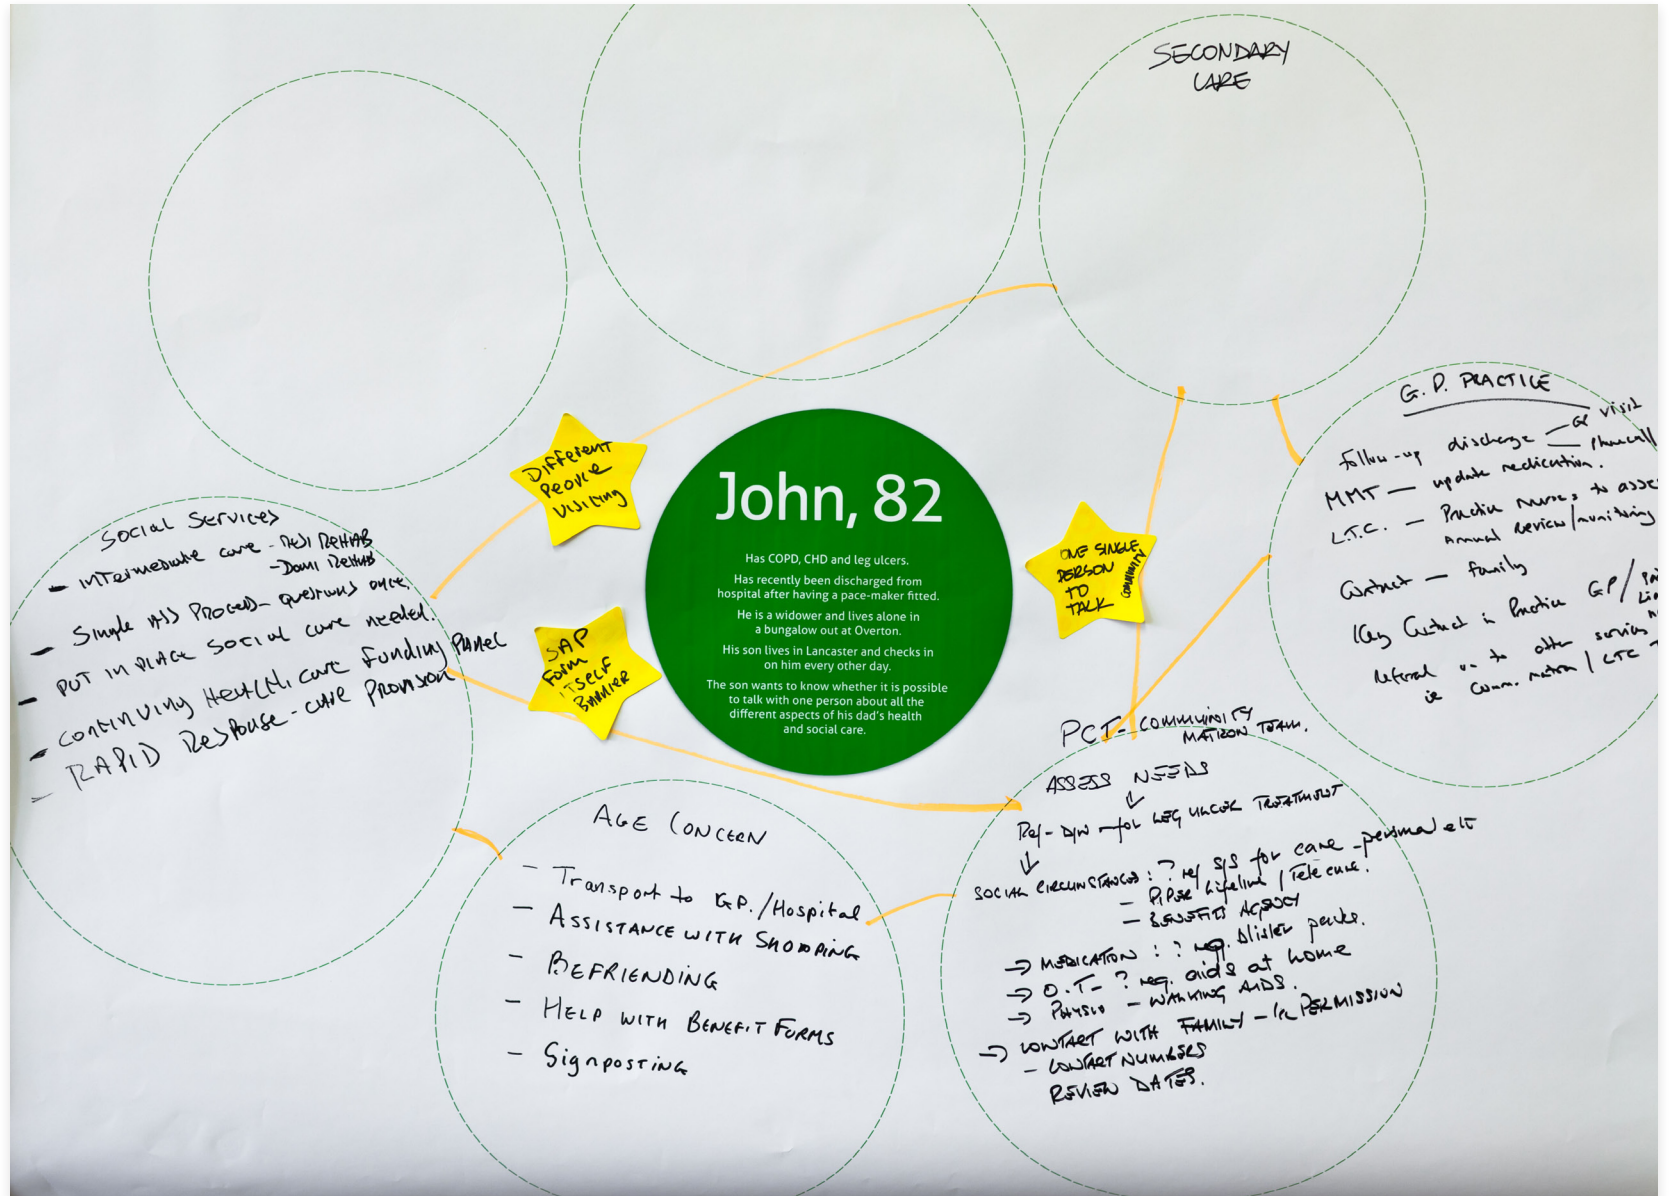 SECONDARY
CARE
G.P. PRACTICE
Follow-up discharge — GP visit
— phonecall
MMT — update medication.
L.T.C. — Practice nurses to asse
Annual review/monitoring
Contact — family
Key Contact in Practice GP/
Referral on to other services
ie Comm. matron / LTC
Different
People
Visiting
John, 82
Has COPD, CHD and leg ulcers.
Has recently been discharged from
hospital after having a pace-maker fitted.
He is a widower and lives alone in
a bungalow out at Overton.
His son lives in Lancaster and checks in
on him every other day.
The son wants to know whether it is possible
to talk with one person about all the
different aspects of his dad's health
and social care.
ONE SINGLE
PERSON
TO
TALK
COMMUNITY
SAP
Form
ITSELF
BARRIER
Social Services
- Intermediate care - Resi Rehab
- Domi Rehab
- Single Ass Process - questions once,
- PUT IN PLACE SOCIAL care needed.
- CONTINUING HEALTH care Funding PANEL
- RAPID Response - care Provision
AGE CONCERN
- Transport to G.P./Hospital
- ASSISTANCE WITH SHOPPING
- BEFRIENDING
- HELP WITH BENEFIT FORMS
- Signposting
PCT - COMMUNITY
MATRON TEAM.
ASSESS NEEDS
Ref - D/N - for LEG ULCER TREATMENT
SOCIAL CIRCUMSTANCES : ? ref S/S for care - personal etc
- PIPER Lifeline / Tele care.
- BENEFITS AGENCY
→ MEDICATION : ? req. blister packs.
→ O.T - ? req. aids at home
→ PHYSIO - WALKING AIDS.
→ CONTACT WITH FAMILY - PERMISSION
- CONTACT NUMBERS
REVIEW DATES.